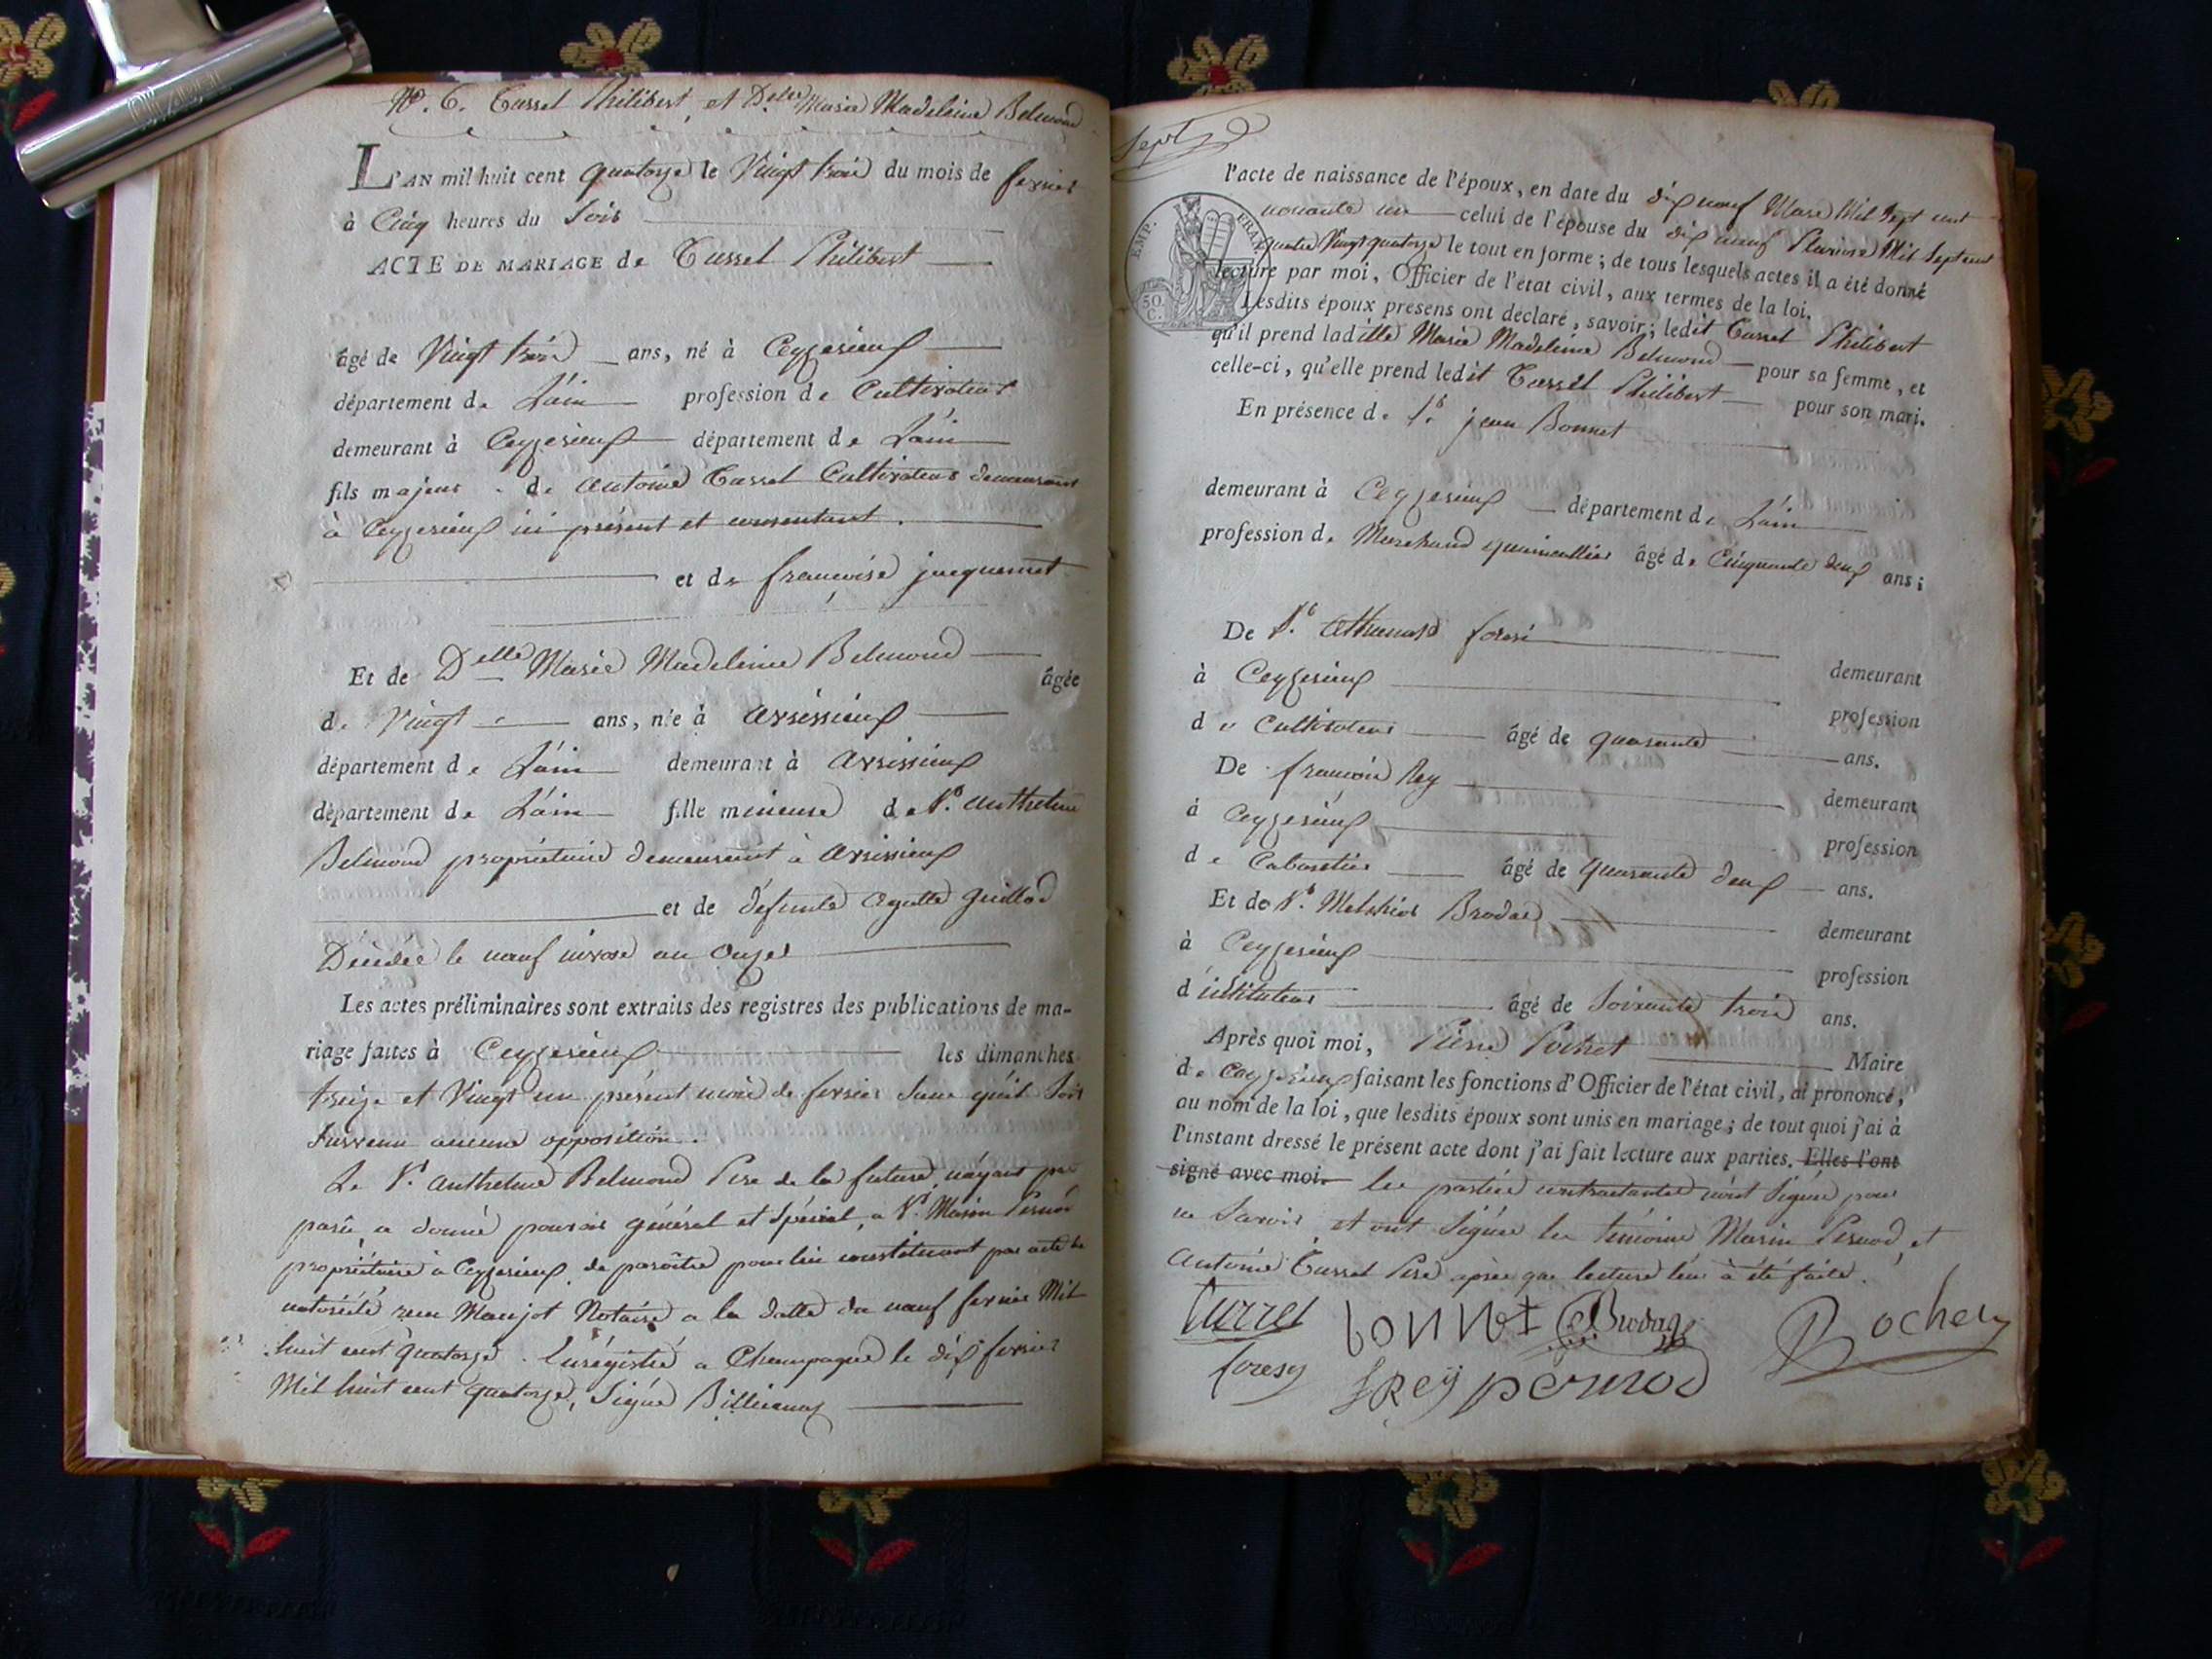 N.º 6. Turrel Philibert, et Delle Marie Madeleine Belmond
L'AN mil huit cent quatorze le Vingt trois du mois de fevrier
à Cinq heures du Soir
ACTE DE MARIAGE de Turrel Philibert
âgé de Vingt trois ans, né à Ceyzerieux
département de L'ain profession de Cultivateur
demeurant à Ceyzerieux département de L'ain
fils majeur de Antoine Turrel Cultivateur demeurant
à Ceyzerieux ici présent et consentant.
et de françoise jacquemet
Et de Delle Marie Madeleine Belmond âgée
de Vingt ans, née à Avrissieux
département de L'ain demeurant à Avrissieux
département de L'ain fille mineure de Sr. Anthelme
Belmond propriétaire demeurant à Avrissieux
et de défunte Agatte Guillod
Décédée le neuf nivose an Onze
Les actes préliminaires sont extraits des registres des publications de ma-
riage faites à Ceyzerieux les dimanches
treize et Vingt un présent mois de fevrier Sans qu'il Soit
Survenu aucune opposition.
Le Sr. Anthelme Belmond Pere de la future n'ayant pas
parû a donné pouvoir général et Spécial, a Sr. Marin Pernod
propriétaire a Ceyzerieux de paroître pour lui constituant par acte de
notoriété reçu Maujot Notaire a la datte du neuf fevrier Mil
huit cent quatorze. Enrégistré a Champagne le dix fevrier
Mil huit cent quatorze, Signé
Sept
EMP. FRAN.
50 C.
l'acte de naissance de l'époux, en date du dix neuf Mars Mil Sept cent
nonante un celui de l'épouse du dix neuf Pluviose Mil Sept cent
quatre Vingt quatorze le tout en forme; de tous lesquels actes il a été donné
lecture par moi, Officier de l'état civil, aux termes de la loi.
Lesdits époux présens ont déclaré, savoir; ledit Turrel Philibert
qu'il prend ladille Marie Madeleine Belmond pour sa femme, et
celle-ci, qu'elle prend ledit Turrel Philibert pour son mari.
En présence de Sr. jean Bonnet
demeurant à Ceyzerieux département de L'ain
profession de Marchand quincallier âgé de Cinquante deux ans;
De Sr. Athanase foresi
demeurant
à Ceyzerieux
profession
de Cultivateur âgé de quarante ans.
De françois Rey
demeurant
à Ceyzerieux
profession
de Cabaretier âgé de quarante deux ans.
Et de Sr. Melchior Brodas
demeurant
à Ceyzerieux
profession
d'instituteur âgé de Soixante trois ans.
Après quoi moi, Pierre Pochet Maire
de Ceyzerieux faisant les fonctions d'Officier de l'état civil, ai prononcé,
au nom de la loi, que lesdits époux sont unis en mariage; de tout quoi j'ai à
l'instant dressé le présent acte dont j'ai fait lecture aux parties. Elles l'ont
signé avec moi. les parties contractantes n'ont Signée pour
ne Savoir, et ont Signée les témoins Marin Pernod, et
Antoine Turrel Pere après que lecture leur à été faite.
turrel bonnet Brodaz Rochet
foresy f Reÿ pernod